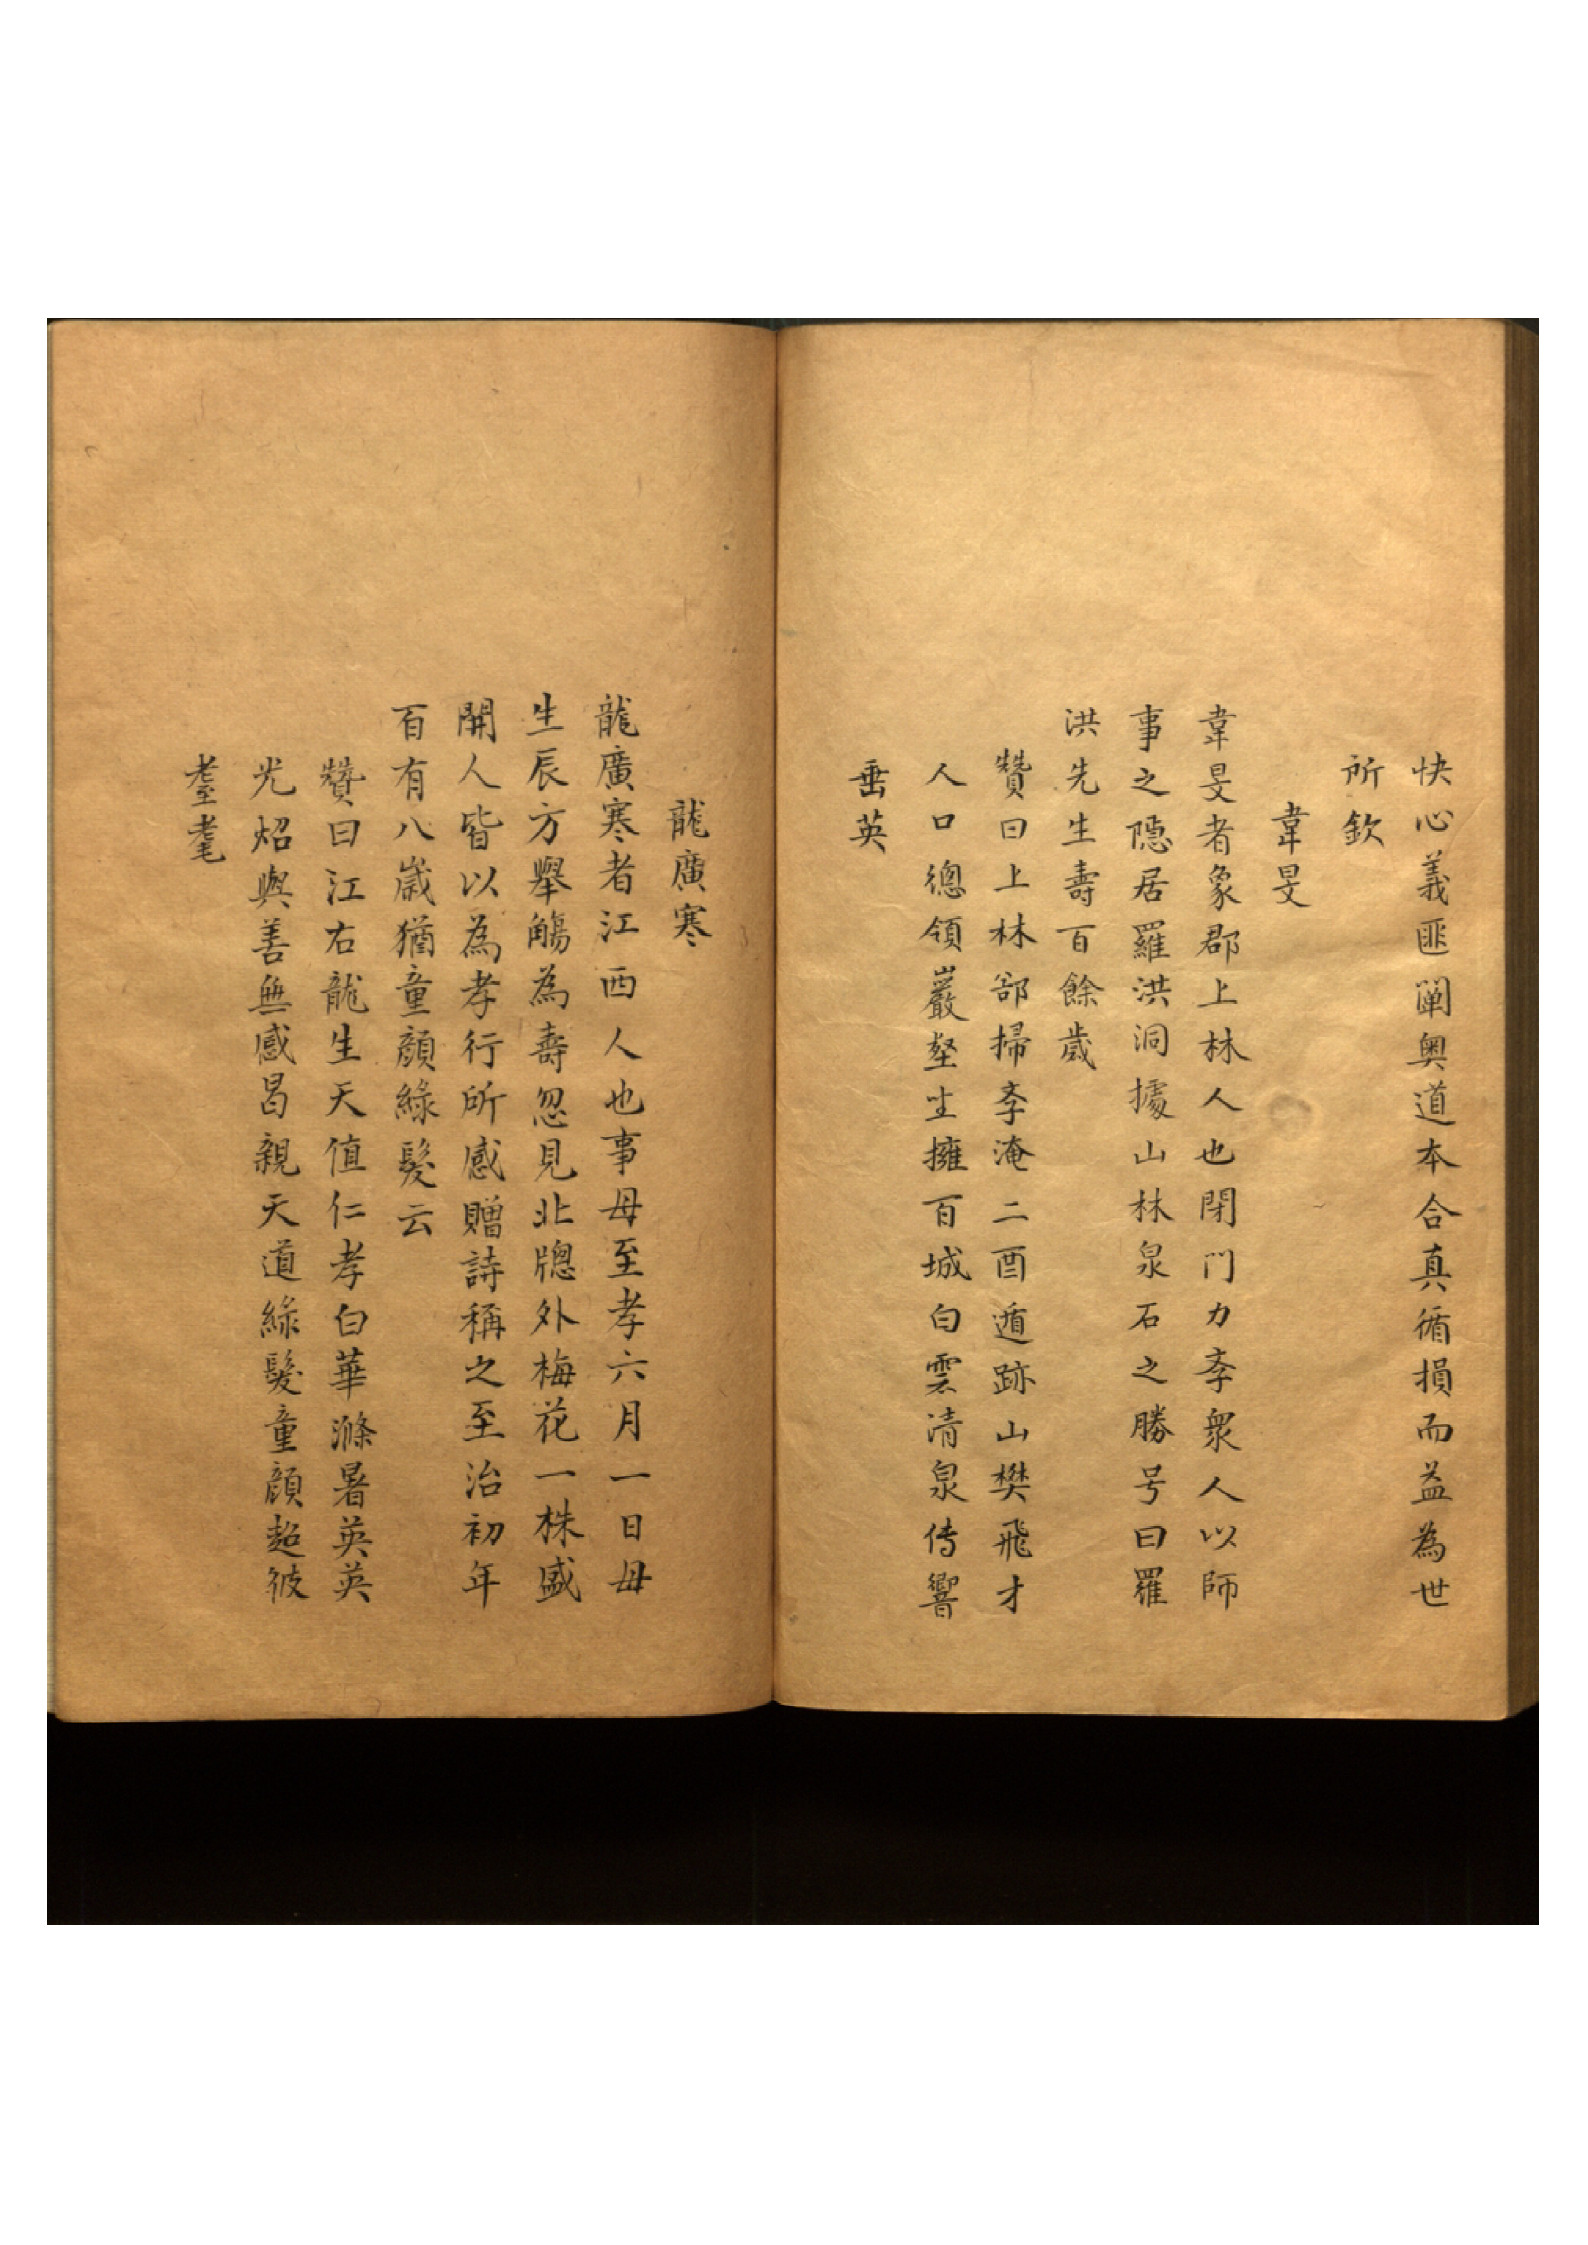 快心義匪闡奥道本合真循損而益為世
所欽
韋旻
韋旻者象郡上林人也閉門力斈衆人以師
事之隱居羅洪洞據山林泉石之勝号曰羅
洪先生壽百餘歲
贊曰上林郤掃斈淹二酉遁跡山樊飛才
人口總領巖壑坐擁百城白雲清泉传響
垂英
龍廣寒
龍廣寒者江西人也事母至孝六月一日母
生辰方舉觴為壽忽見北牎外梅花一株盛
開人皆以為孝行所感贈詩稱之至治初年
百有八嵗猶童顔緑髮云
贊曰江右龍生天值仁孝白華滌暑英英
光炤與善無感曷親天道緑髮童顔超彼
耋耄